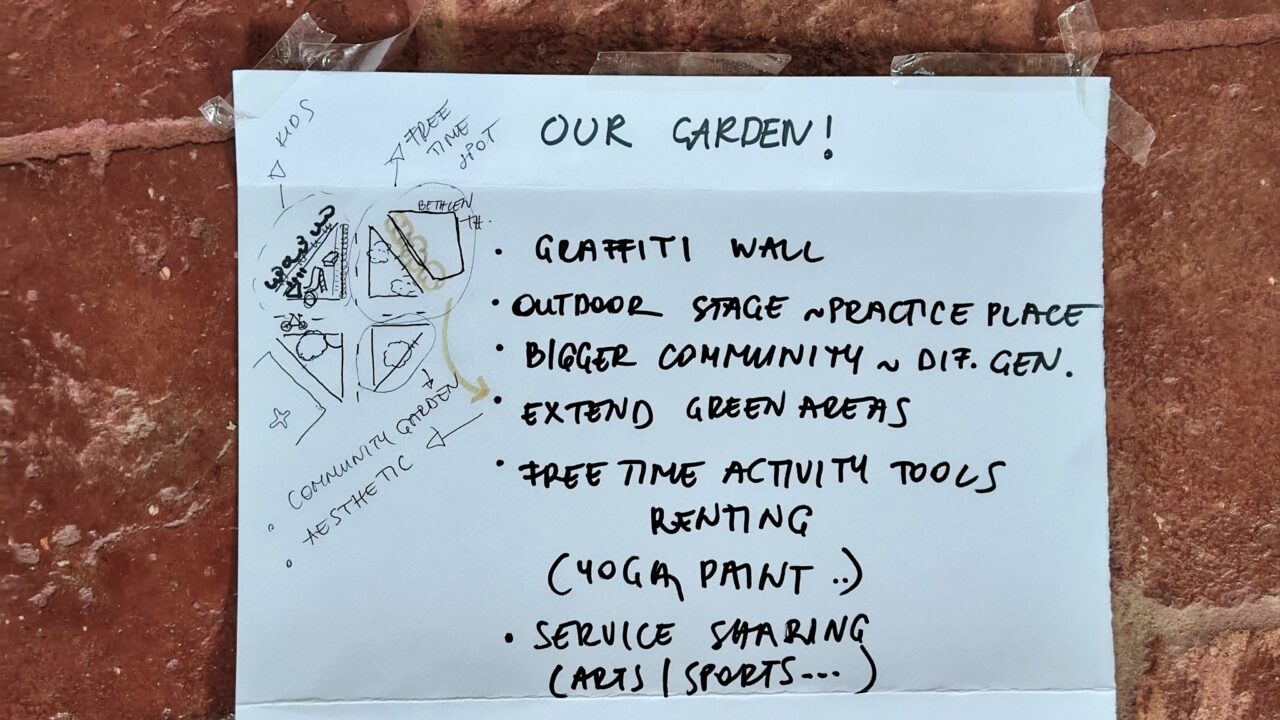 OUR GARDEN!
KIDS
FREE
TIME
SPOT
BETHLEN
• GRAFFITI WALL
• OUTDOOR STAGE ~ PRACTICE PLACE
• BIGGER COMMUNITY ~ DIF. GEN.
• EXTEND GREEN AREAS
• FREE TIME ACTIVITY TOOLS
RENTING
(YOGA, PAINT ..)
• SERVICE SHARING
(ARTS / SPORTS ...)
• COMMUNITY GARDEN
• AESTHETIC